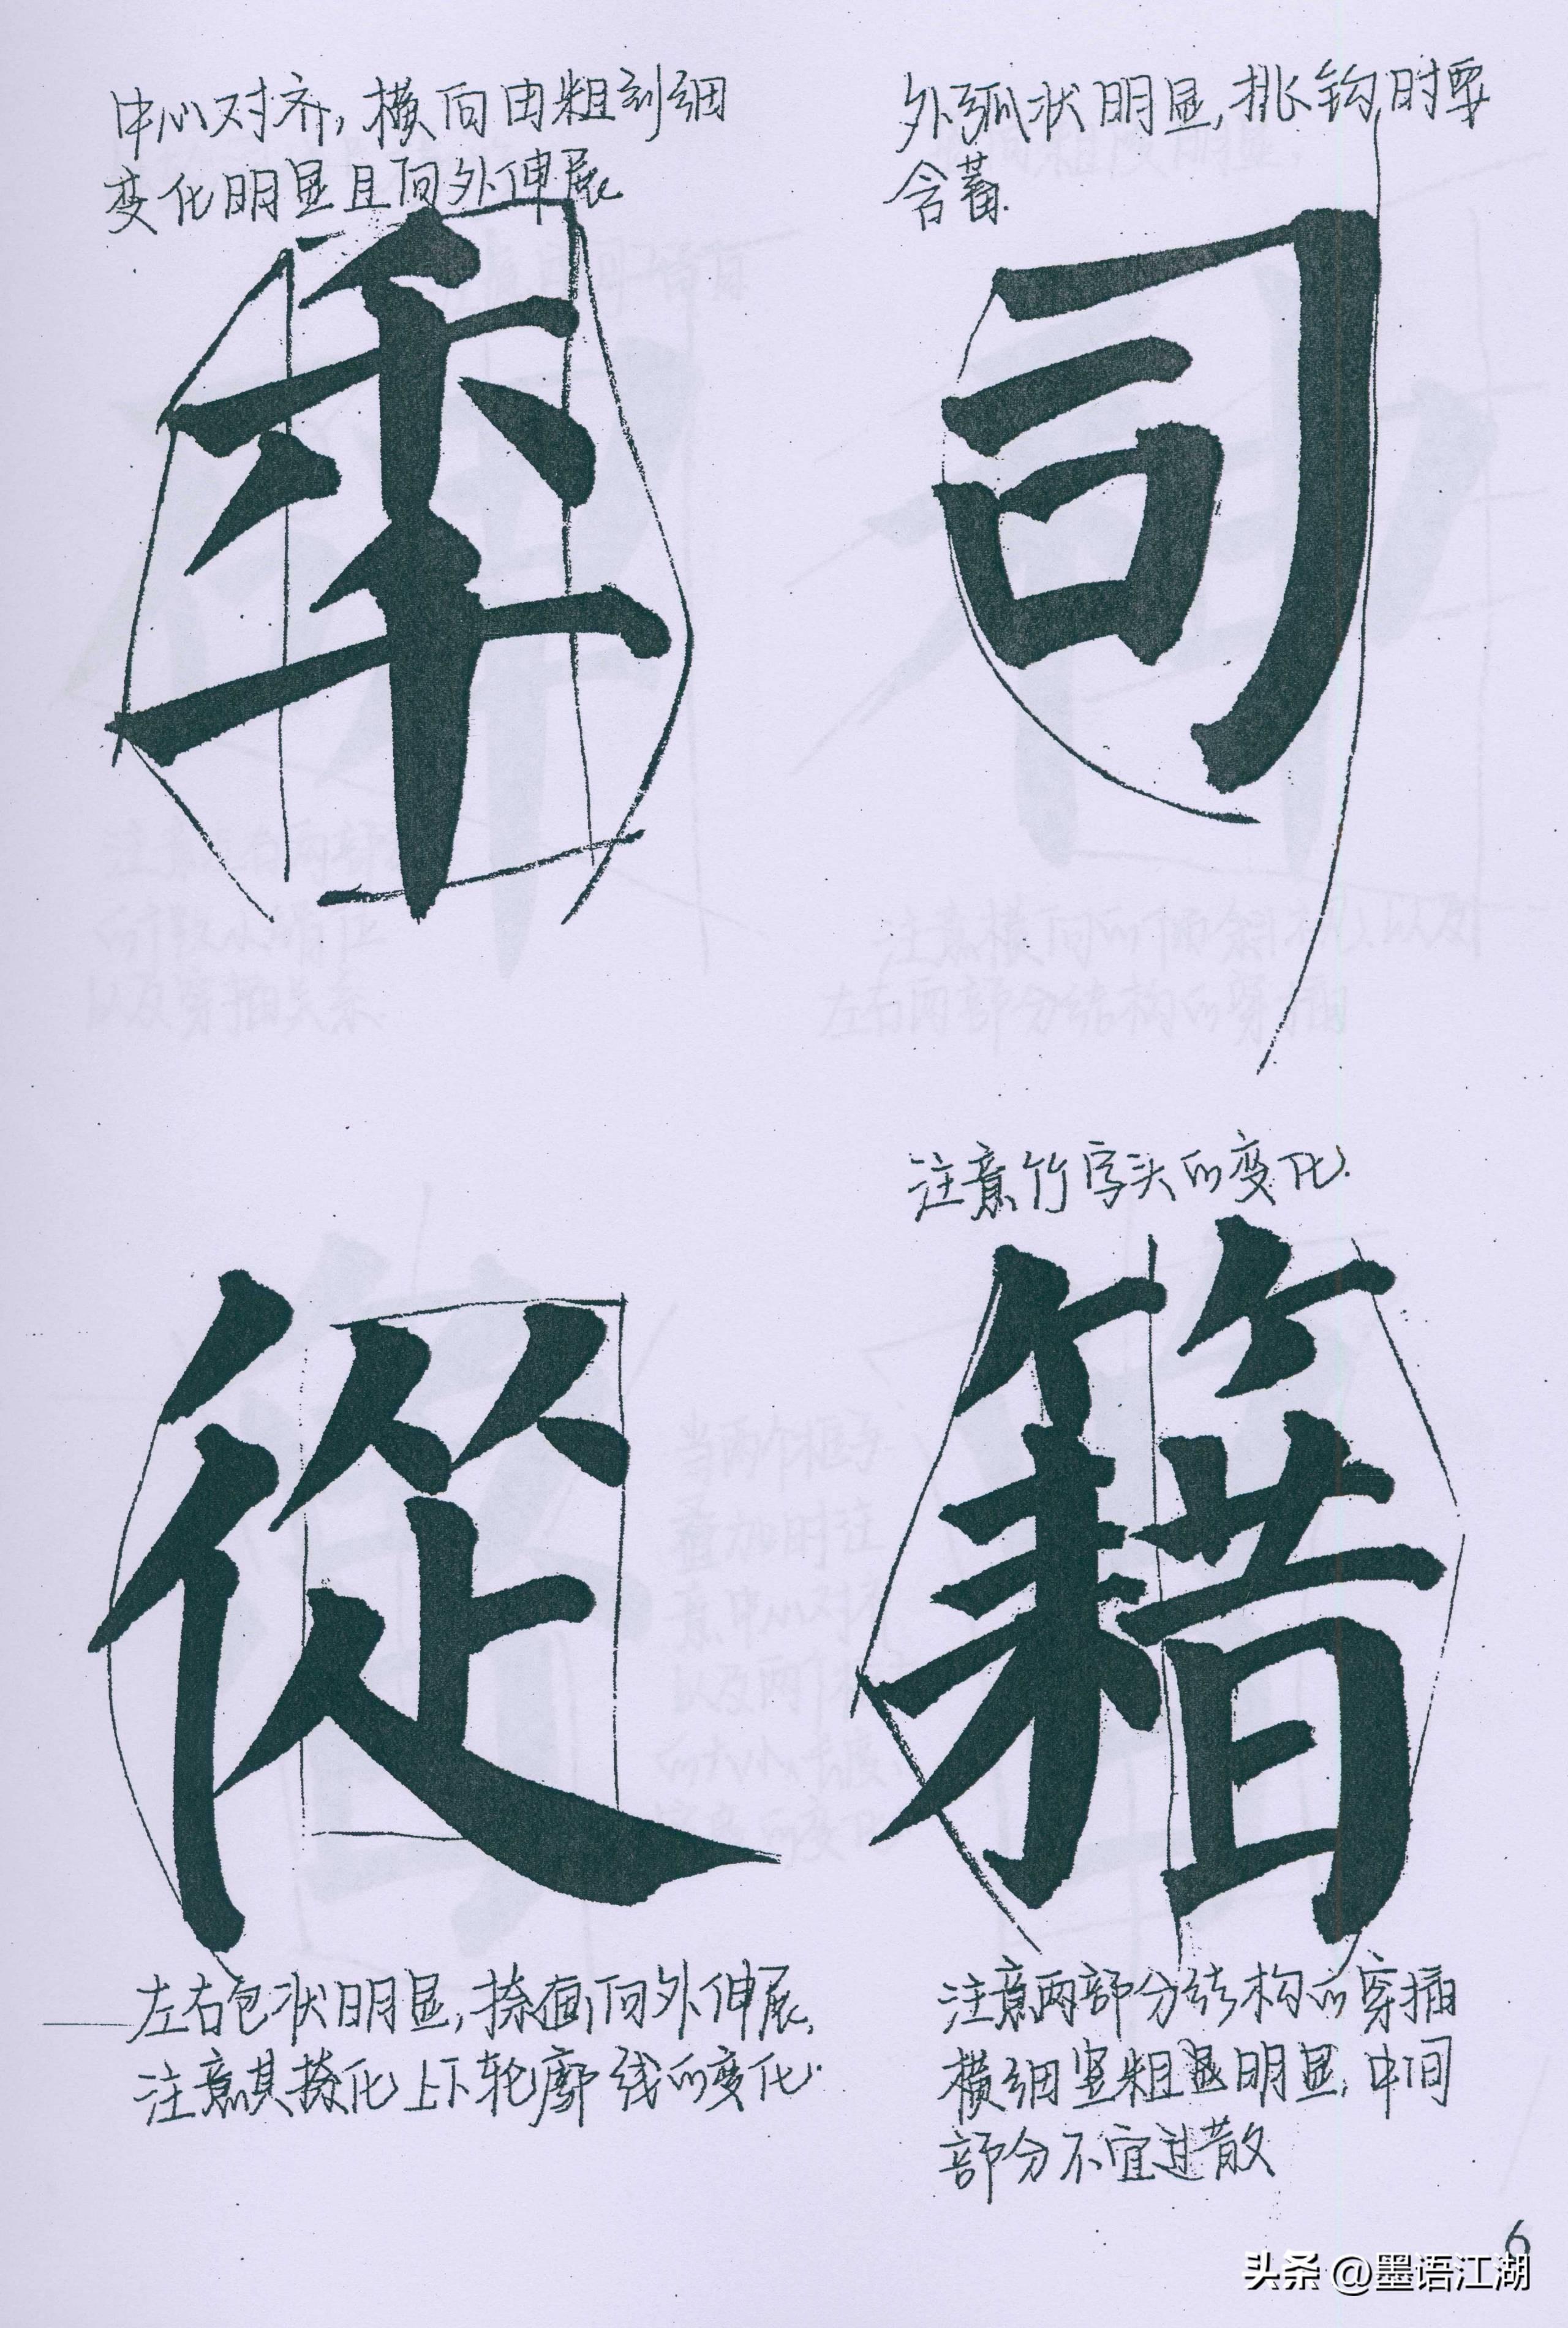 中心对齐,横向由粗到细
变化明显且向外伸展
秊
外弧状明显,挑钩时要
含蓄.
司
從
左右包状明显,捺画向外伸展,
注意其捺化上下轮廓线的变化.
注意竹字头的变化.
籍
注意两部分结构的穿插
横细竖粗显明显,中间
部分不宜过散
6
头条 @墨语江湖